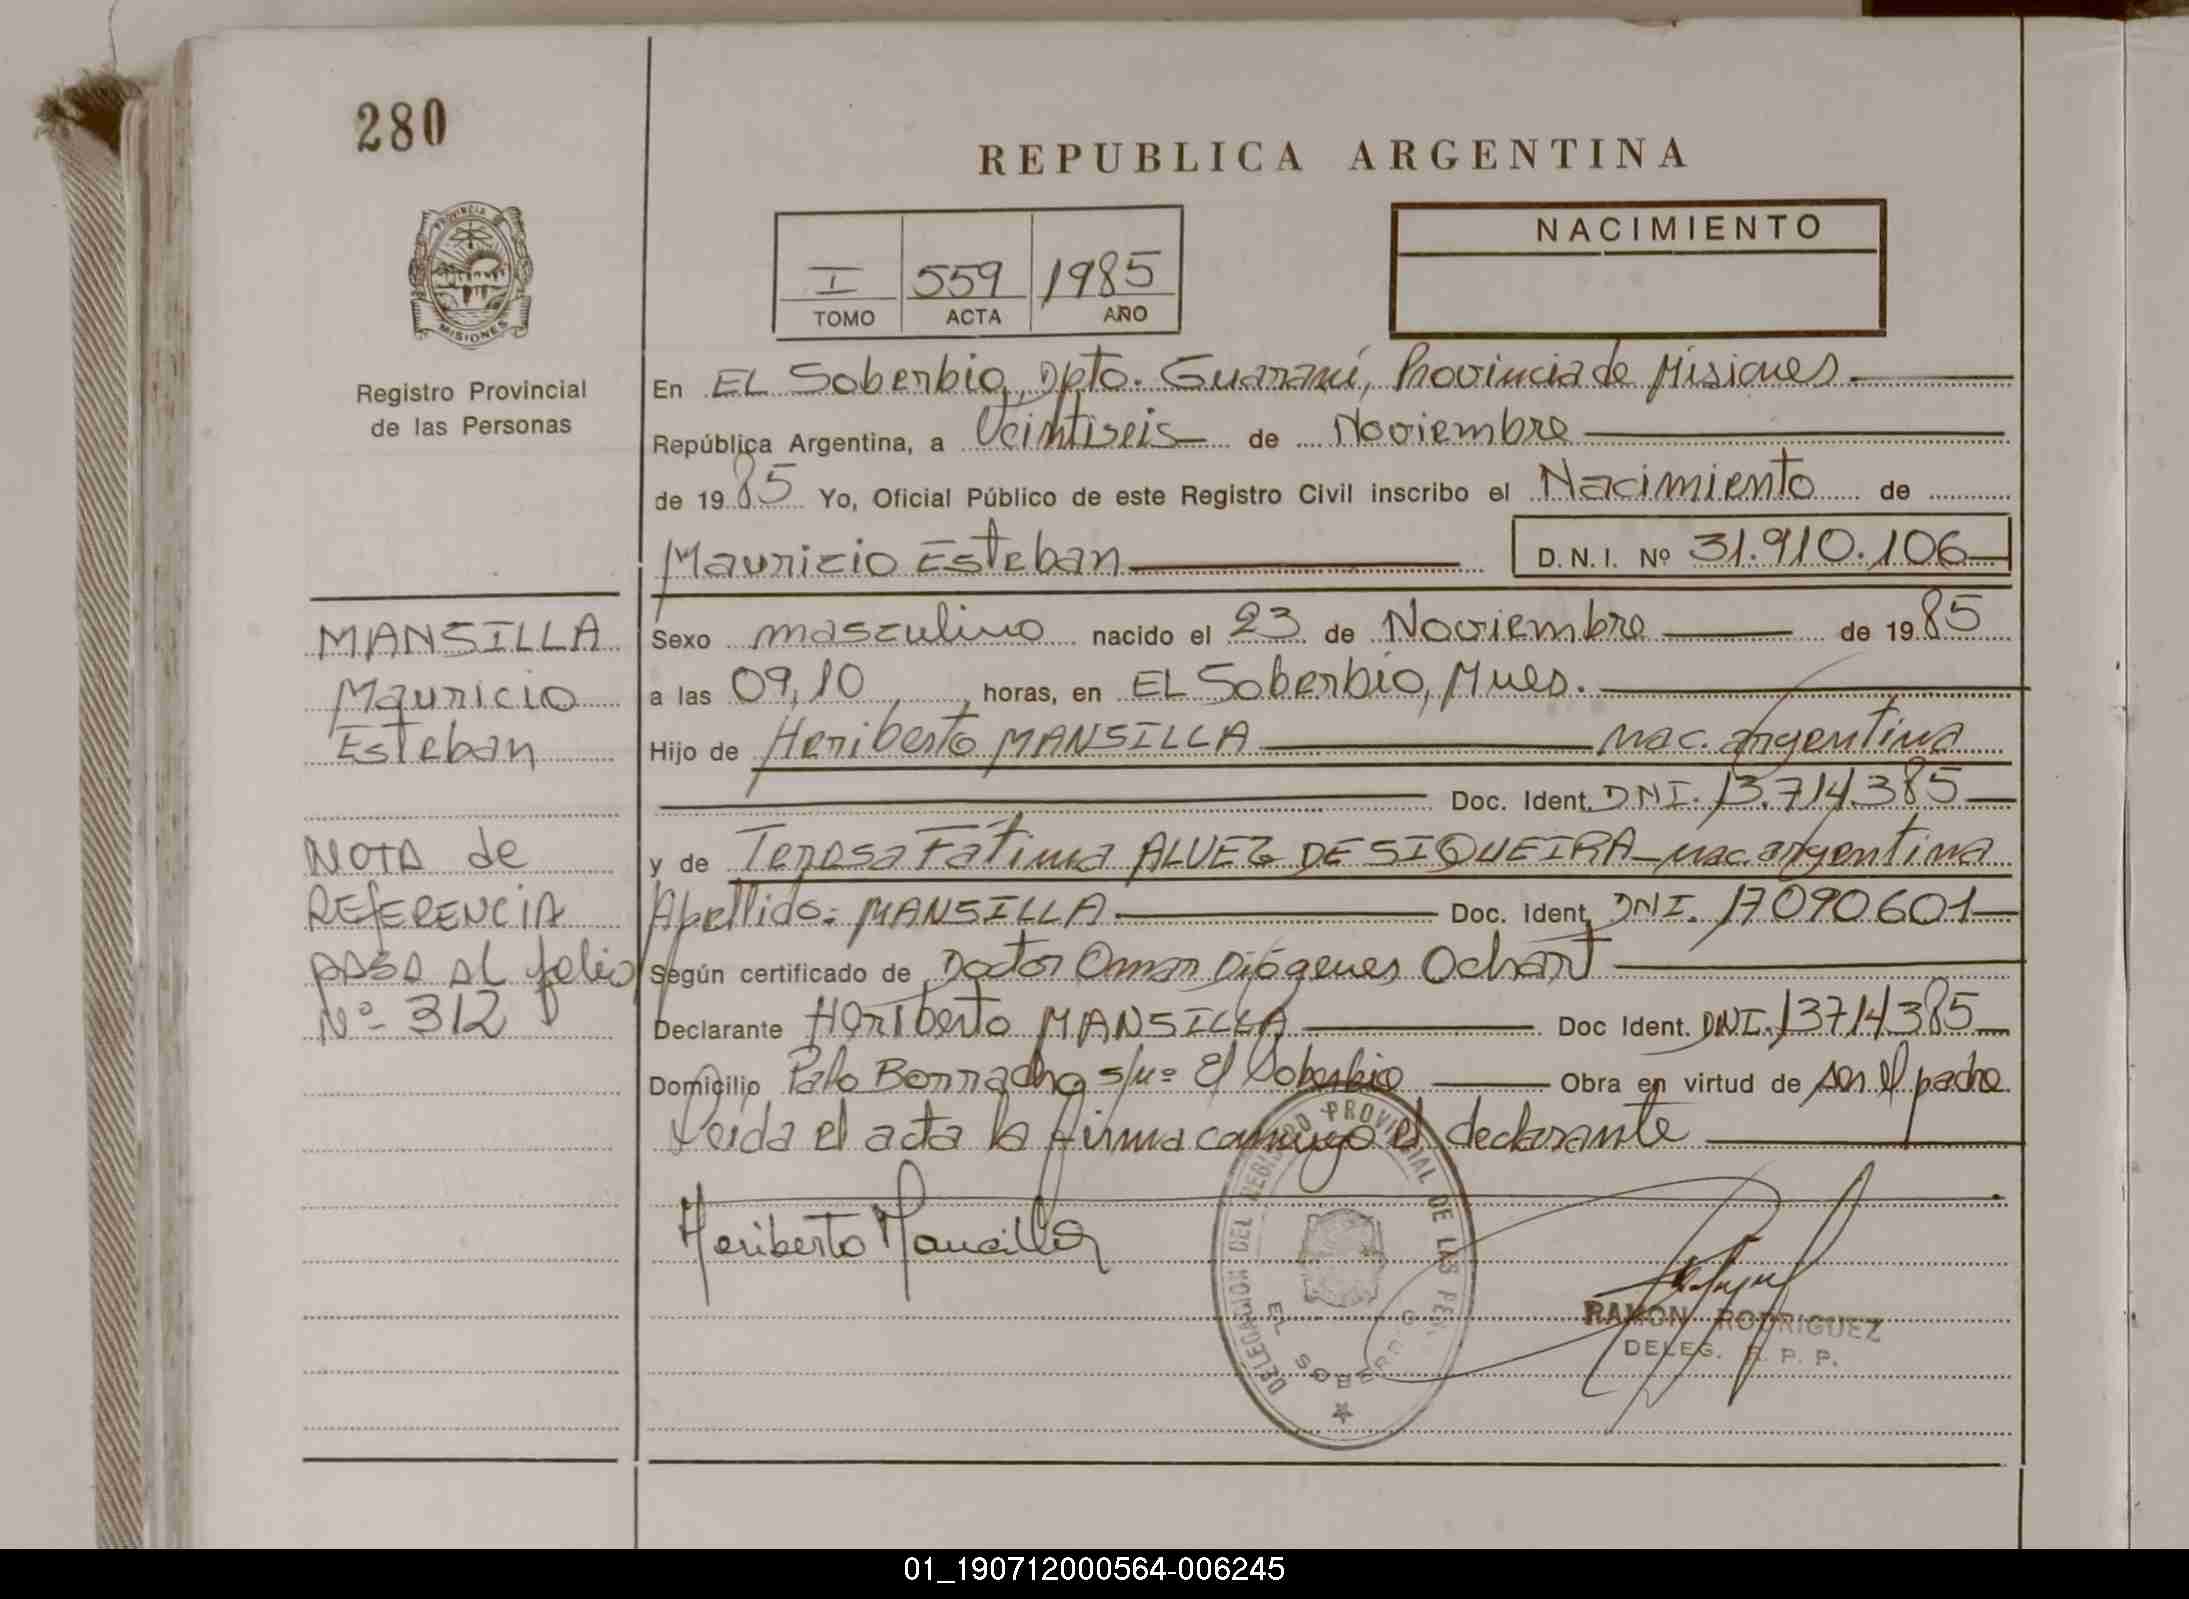 280
REPUBLICA ARGENTINA
PROVINCIA DE
MISIONES
I 559 1985
TOMO ACTA AÑO
NACIMIENTO
Registro Provincial
de las Personas
En EL Soberbio, Dpto. Guaraní, Provincia de Misiones.
República Argentina, a Veintiseis de Noviembre
de 1985 Yo, Oficial Público de este Registro Civil inscribo el Nacimiento de
Mauricio Esteban D.N.I. Nº 31.910.106
MANSILLA
Mauricio
Esteban
NOTA de
REFERENCIA
PASA AL folio
Nº 312
Sexo masculino nacido el 23 de Noviembre de 1985
a las 09,10 horas, en EL Soberbio, Mnes.
Hijo de Heriberto MANSILLA nac. argentina
Doc. Ident. DNI. 13.714.385
y de Teresa Fátima ALVEZ DE SIQUEIRA nac. argentina
Apellido: MANSILLA Doc. Ident. DNI. 17090601
Según certificado de Doctor Omar Diógenes Ochart
Declarante Heriberto MANSILLA Doc Ident. DNI. 13714385
Domicilio Palo Borracho s/nº El Soberbio Obra en virtud de ser el padre
Leída el acta la firma conmigo el declarante
Heriberto Mancilla
DELEGACION DEL REGISTRO PROVINCIAL DE LAS PER.
EL SOBERBIO
RAMON RODRIGUEZ
DELEG. R. P. P.
01_190712000564-006245